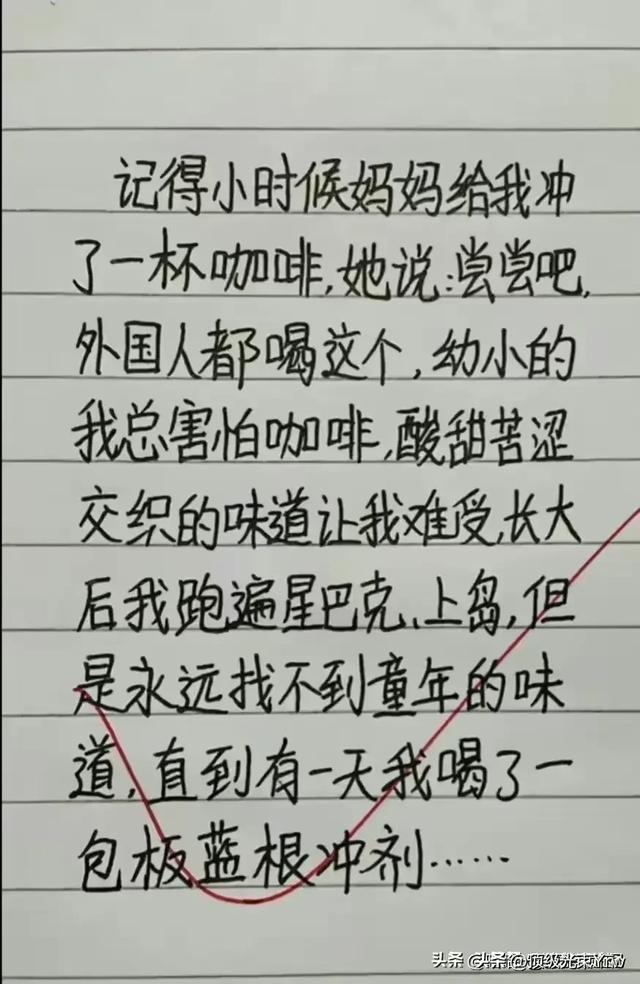 记得小时候妈妈给我冲
了一杯咖啡,她说:尝尝吧,
外国人都喝这个,幼小的
我总害怕咖啡,酸甜苦涩
交织的味道让我难受,长大
后我跑遍星巴克、上岛,但
是永远找不到童年的味
道,直到有一天我喝了一
包板蓝根冲剂……
头条